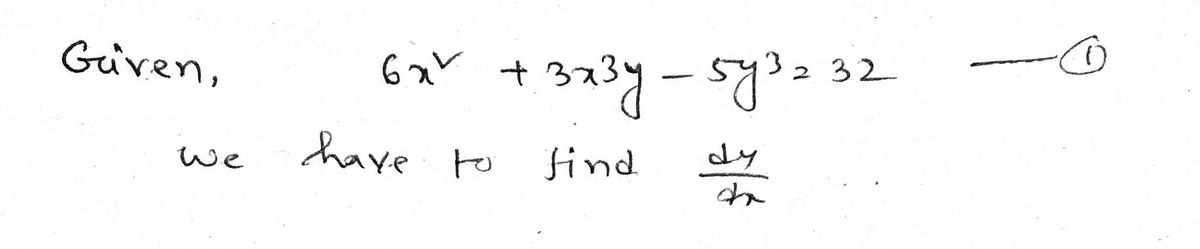 Given, 6x² + 3x3y - 5y³ = 32 —①
we have to find dy/dx